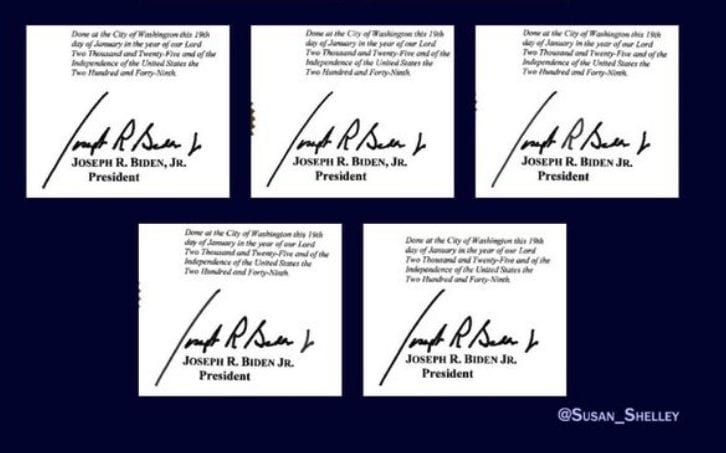 Done at the City of Washington this 19th
day of January in the year of our Lord
Two Thousand and Twenty-Five and of the
Independence of the United States the
Two Hundred and Forty-Ninth.
Joseph R Biden Jr
JOSEPH R. BIDEN, JR.
President
Done at the City of Washington this 19th
day of January in the year of our Lord
Two Thousand and Twenty-Five and of the
Independence of the United States the
Two Hundred and Forty-Ninth.
Joseph R Biden Jr
JOSEPH R. BIDEN, JR.
President
Done at the City of Washington this 19th
day of January in the year of our Lord
Two Thousand and Twenty-Five and of the
Independence of the United States the
Two Hundred and Forty-Ninth.
Joseph R Biden Jr
JOSEPH R. BIDEN JR.
President
Done at the City of Washington this 19th
day of January in the year of our Lord
Two Thousand and Twenty-Five and of the
Independence of the United States the
Two Hundred and Forty-Ninth.
Joseph R Biden Jr
JOSEPH R. BIDEN JR.
President
Done at the City of Washington this 19th
day of January in the year of our Lord
Two Thousand and Twenty-Five and of the
Independence of the United States the
Two Hundred and Forty-Ninth.
Joseph R Biden Jr
JOSEPH R. BIDEN JR.
President
@SUSAN_SHELLEY